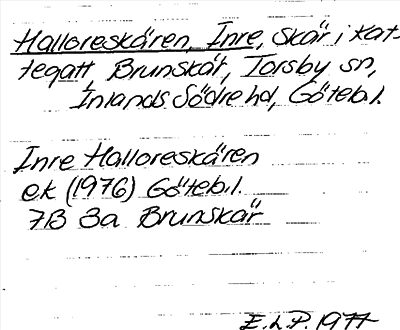 Halloreskären, Inre, skär i Kat-
tegatt, Brunskär, Torsby sn,
Inlands Södre hd, Göteb.l.
Inre Halloreskären
ek (1976) Göteb.l.
7B 3a Brunskär
E.L.P. 1977